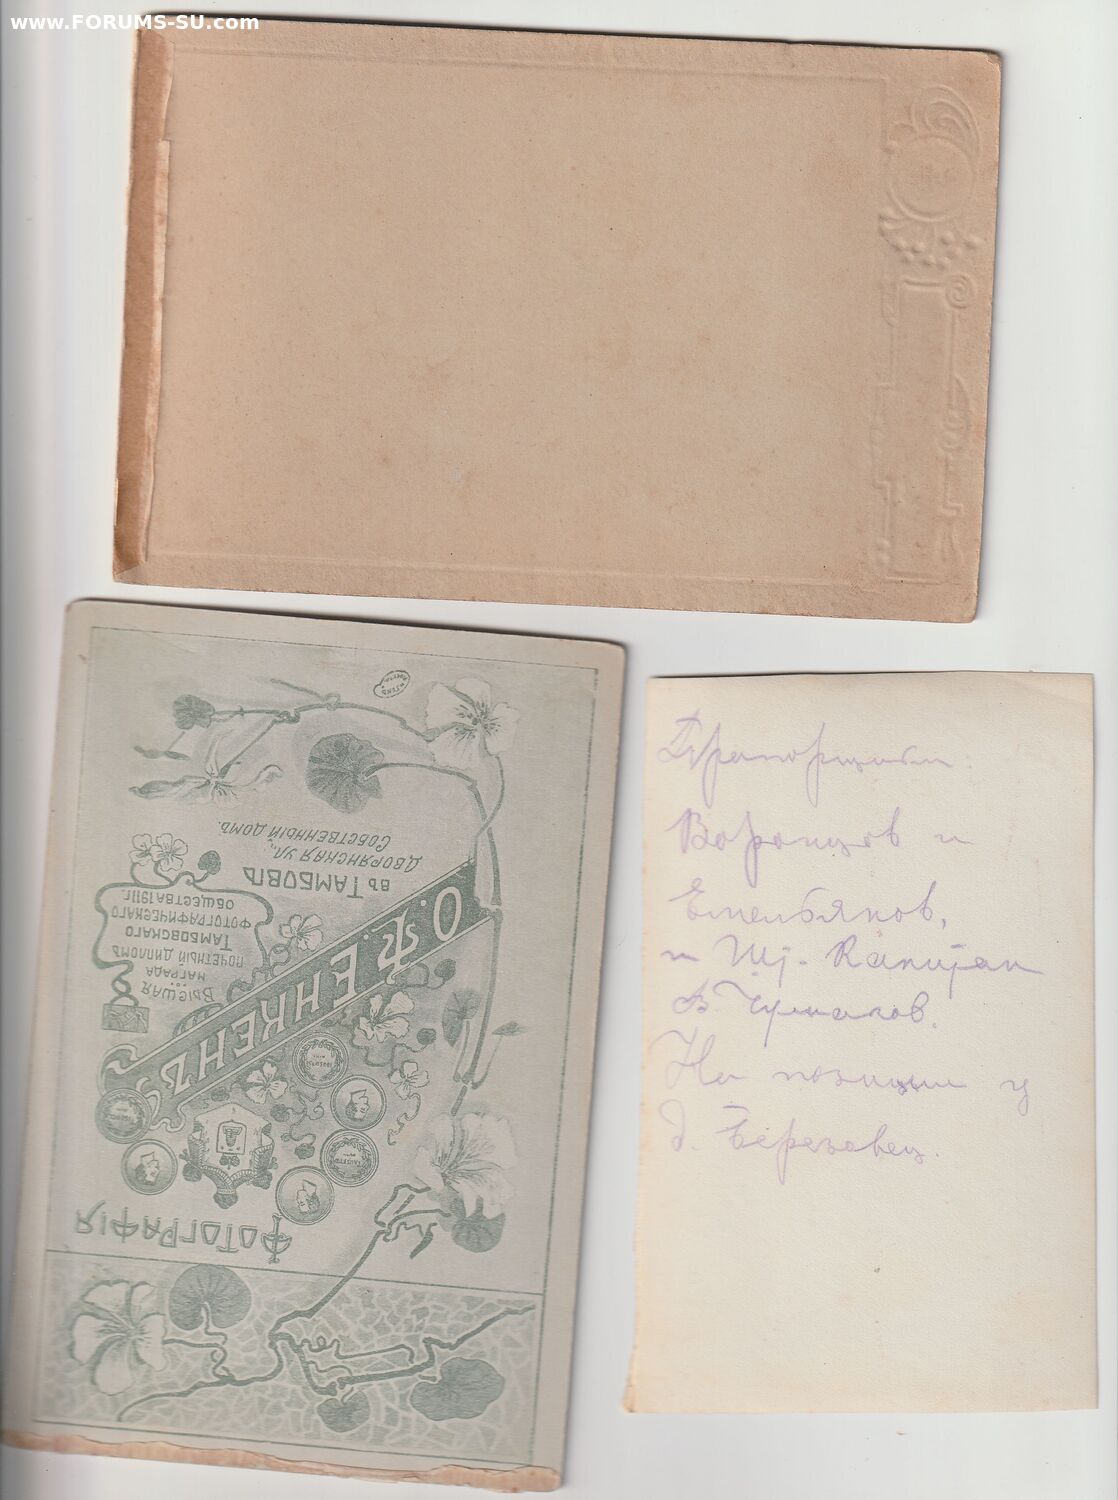 www.FORUMS-SU.com
Фотографія
О. Я. Енкенъ
Высшая
награда
почетный дипломъ
Тамбовскаго
фотографическаго
общества 1911 г.
въ Тамбовѣ
Дворянская ул.,
Собственный домъ.
Прапорщики:
Воронцов и
Емельянов,
и Шт. Капитан
В. Чумаков.
На позиции у
д. Березовец.